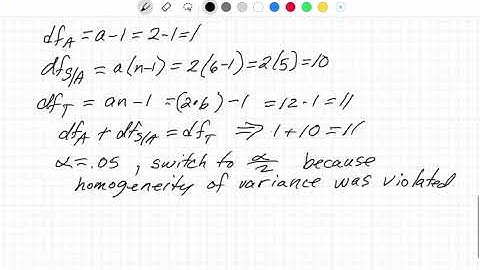 df_A = a-1 = 2-1 = 1
df_S/A = a(n-1) = 2(6-1) = 2(5) = 10
df_T = an-1 = (2•6)-1 = 12-1 = 11
df_A + df_S/A = df_T ⇒ 1+10 = 11
α = .05, switch to α/2 because
homogeneity of variance was violated